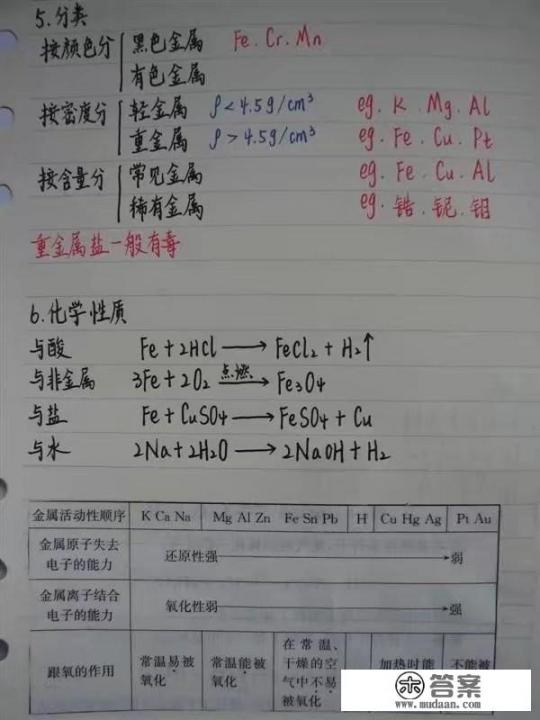 5.分类
按颜色分 黑色金属 Fe.Cr.Mn
有色金属
按密度分 轻金属 ρ<4.5g/cm³ eg.K.Mg.Al
重金属 ρ>4.5g/cm³ eg.Fe.Cu.Pt
按含量分 常见金属 eg.Fe.Cu.Al
稀有金属 eg.锆.铌.钼
重金属盐一般有毒
6.化学性质
与酸 Fe+2HCl⟶FeCl₂+H₂↑
与非金属 3Fe+2O₂ 点燃⟶Fe₃O₄
与盐 Fe+CuSO₄⟶FeSO₄+Cu
与水 2Na+2H₂O⟶2NaOH+H₂
金属活动性顺序 K Ca Na Mg Al Zn Fe Sn Pb H Cu Hg Ag Pt Au
金属原子失去
电子的能力
还原性强⟶弱
金属离子结合
电子的能力
氧化性弱⟶强
跟氧的作用
常温易被
氧化
常温能被
氧化
在常温、
干燥的空
气中不易
被氧化
加热时能
不能被
答案
www.mudaan.com